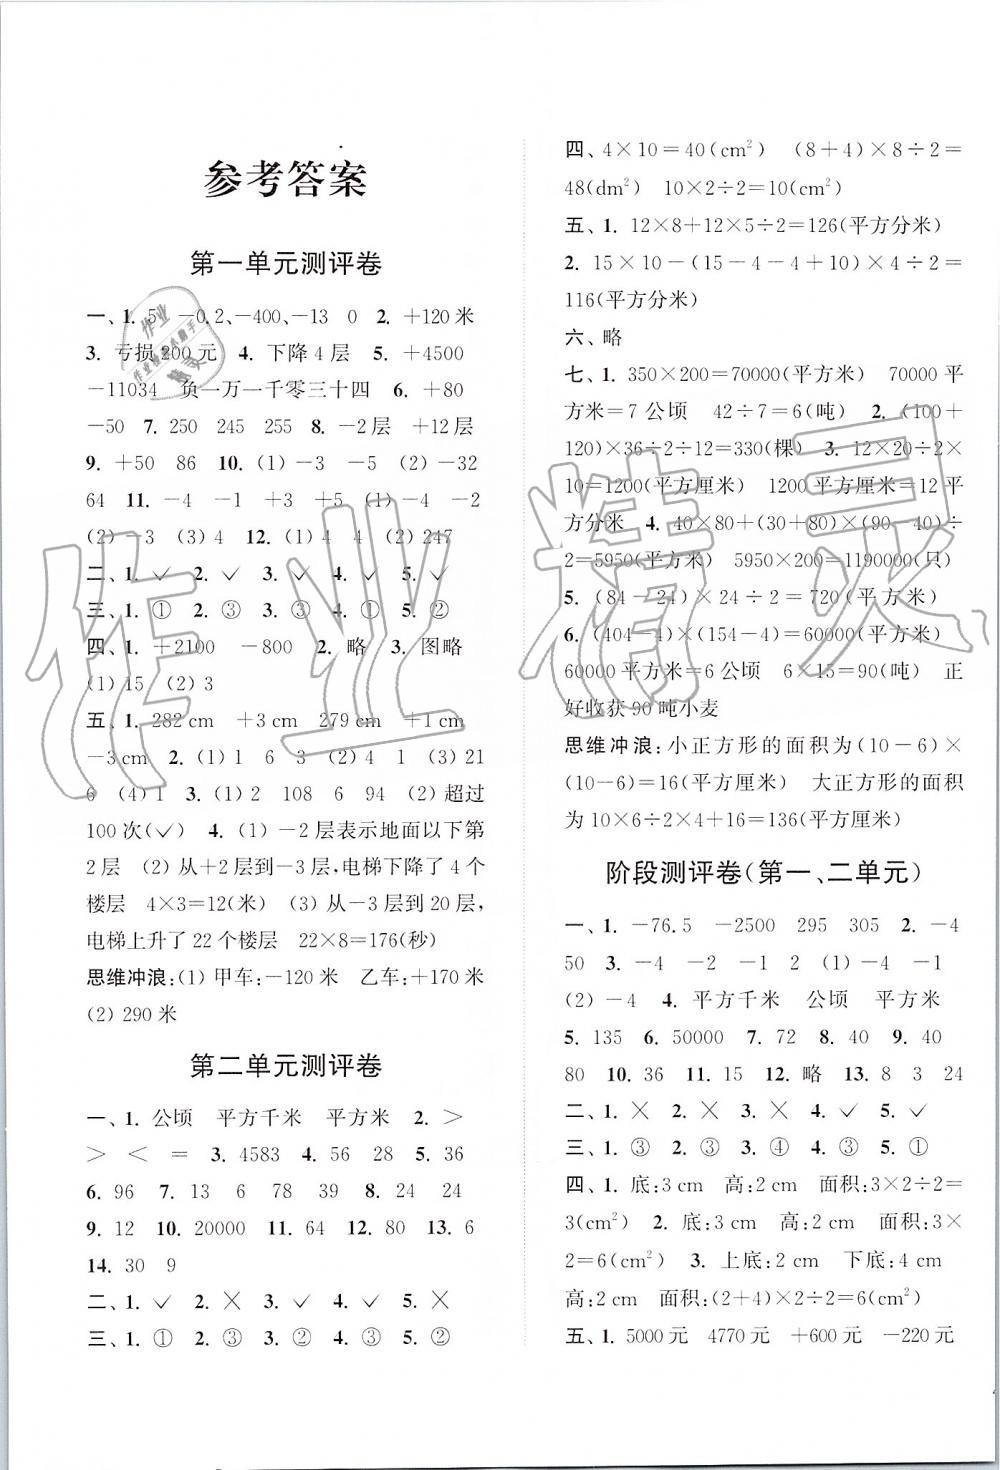 参考答案
第一单元测评卷
一、1. 5 －0.2、－400、－13 0 2. ＋120米
3. 亏损200元 4. 下降4层 5. ＋4500
－11034 负一万一千零三十四 6. ＋80
－50 7. 250 245 255 8. －2层 ＋12层
9. ＋50 86 10. (1)－3 －5 (2)－32
64 11. －4 －1 ＋3 ＋5 (1)－4 －2
(2)－3 (3)4 12. (1)4 4 (2)247
二、1. ✓ 2. ✓ 3. ✓ 4. ✓ 5. ✓
三、1. ① 2. ③ 3. ③ 4. ① 5. ②
四、1. ＋2100 －800 2. 略 3. 图略
(1)15 (2)3
五、1. 282 cm ＋3 cm 279 cm ＋1 cm
－3 cm 2. (1)1 6 3 (2)4 1 (3)21
6 (4)1 3. (1)2 108 6 94 (2)超过
100次(✓) 4. (1)－2层表示地面以下第
2层 (2)从＋2层到－3层,电梯下降了4个
楼层 4×3＝12(米) (3)从－3层到20层,
电梯上升了22个楼层 22×8＝176(秒)
思维冲浪:(1)甲车:－120米 乙车:＋170米
(2)290米
第二单元测评卷
一、1. 公顷 平方千米 平方米 2. ＞
＞ ＜ ＝ 3. 4583 4. 56 28 5. 36
6. 96 7. 13 6 78 39 8. 24 24
9. 12 10. 20000 11. 64 12. 80 13. 6
14. 30 9
二、1. ✓ 2. ✕ 3. ✓ 4. ✓ 5. ✕
三、1. ① 2. ③ 3. ② 4. ③ 5. ②
四、4×10＝40(cm²) (8＋4)×8÷2＝
48(dm²) 10×2÷2＝10(cm²)
五、1. 12×8＋12×5÷2＝126(平方分米)
2. 15×10－(15－4－4＋10)×4÷2＝
116(平方分米)
六、略
七、1. 350×200＝70000(平方米) 70000平
方米＝7公顷 42÷7＝6(吨) 2. (100＋
120)×36÷2÷12＝330(棵) 3. 12×20÷2×
10＝1200(平方厘米) 1200平方厘米＝12平
方分米 4. 40×80＋(30＋80)×(90－40)÷
2＝5950(平方米) 5950×200＝1190000(只)
5. (84－24)×24÷2＝720(平方米)
6. (404－4)×(154－4)＝60000(平方米)
60000平方米＝6公顷 6×15＝90(吨) 正
好收获90吨小麦
思维冲浪:小正方形的面积为(10－6)×
(10－6)＝16(平方厘米) 大正方形的面积
为10×6÷2×4＋16＝136(平方厘米)
阶段测评卷(第一、二单元)
一、1. －76.5 －2500 295 305 2. －4
50 3. －4 －2 －1 2 (1)－4 －1
(2)－4 4. 平方千米 公顷 平方米
5. 135 6. 50000 7. 72 8. 40 9. 40
80 10. 36 11. 15 12. 略 13. 8 3 24
二、1. ✕ 2. ✕ 3. ✕ 4. ✓ 5. ✓
三、1. ③ 2. ③ 3. ④ 4. ③ 5. ①
四、1. 底:3 cm 高:2 cm 面积:3×2÷2＝
3(cm²) 2. 底:3 cm 高:2 cm 面积:3×
2＝6(cm²) 3. 上底:2 cm 下底:4 cm
高:2 cm 面积:(2＋4)×2÷2＝6(cm²)
五、1. 5000元 4770元 ＋600元 －220元
作业精灵